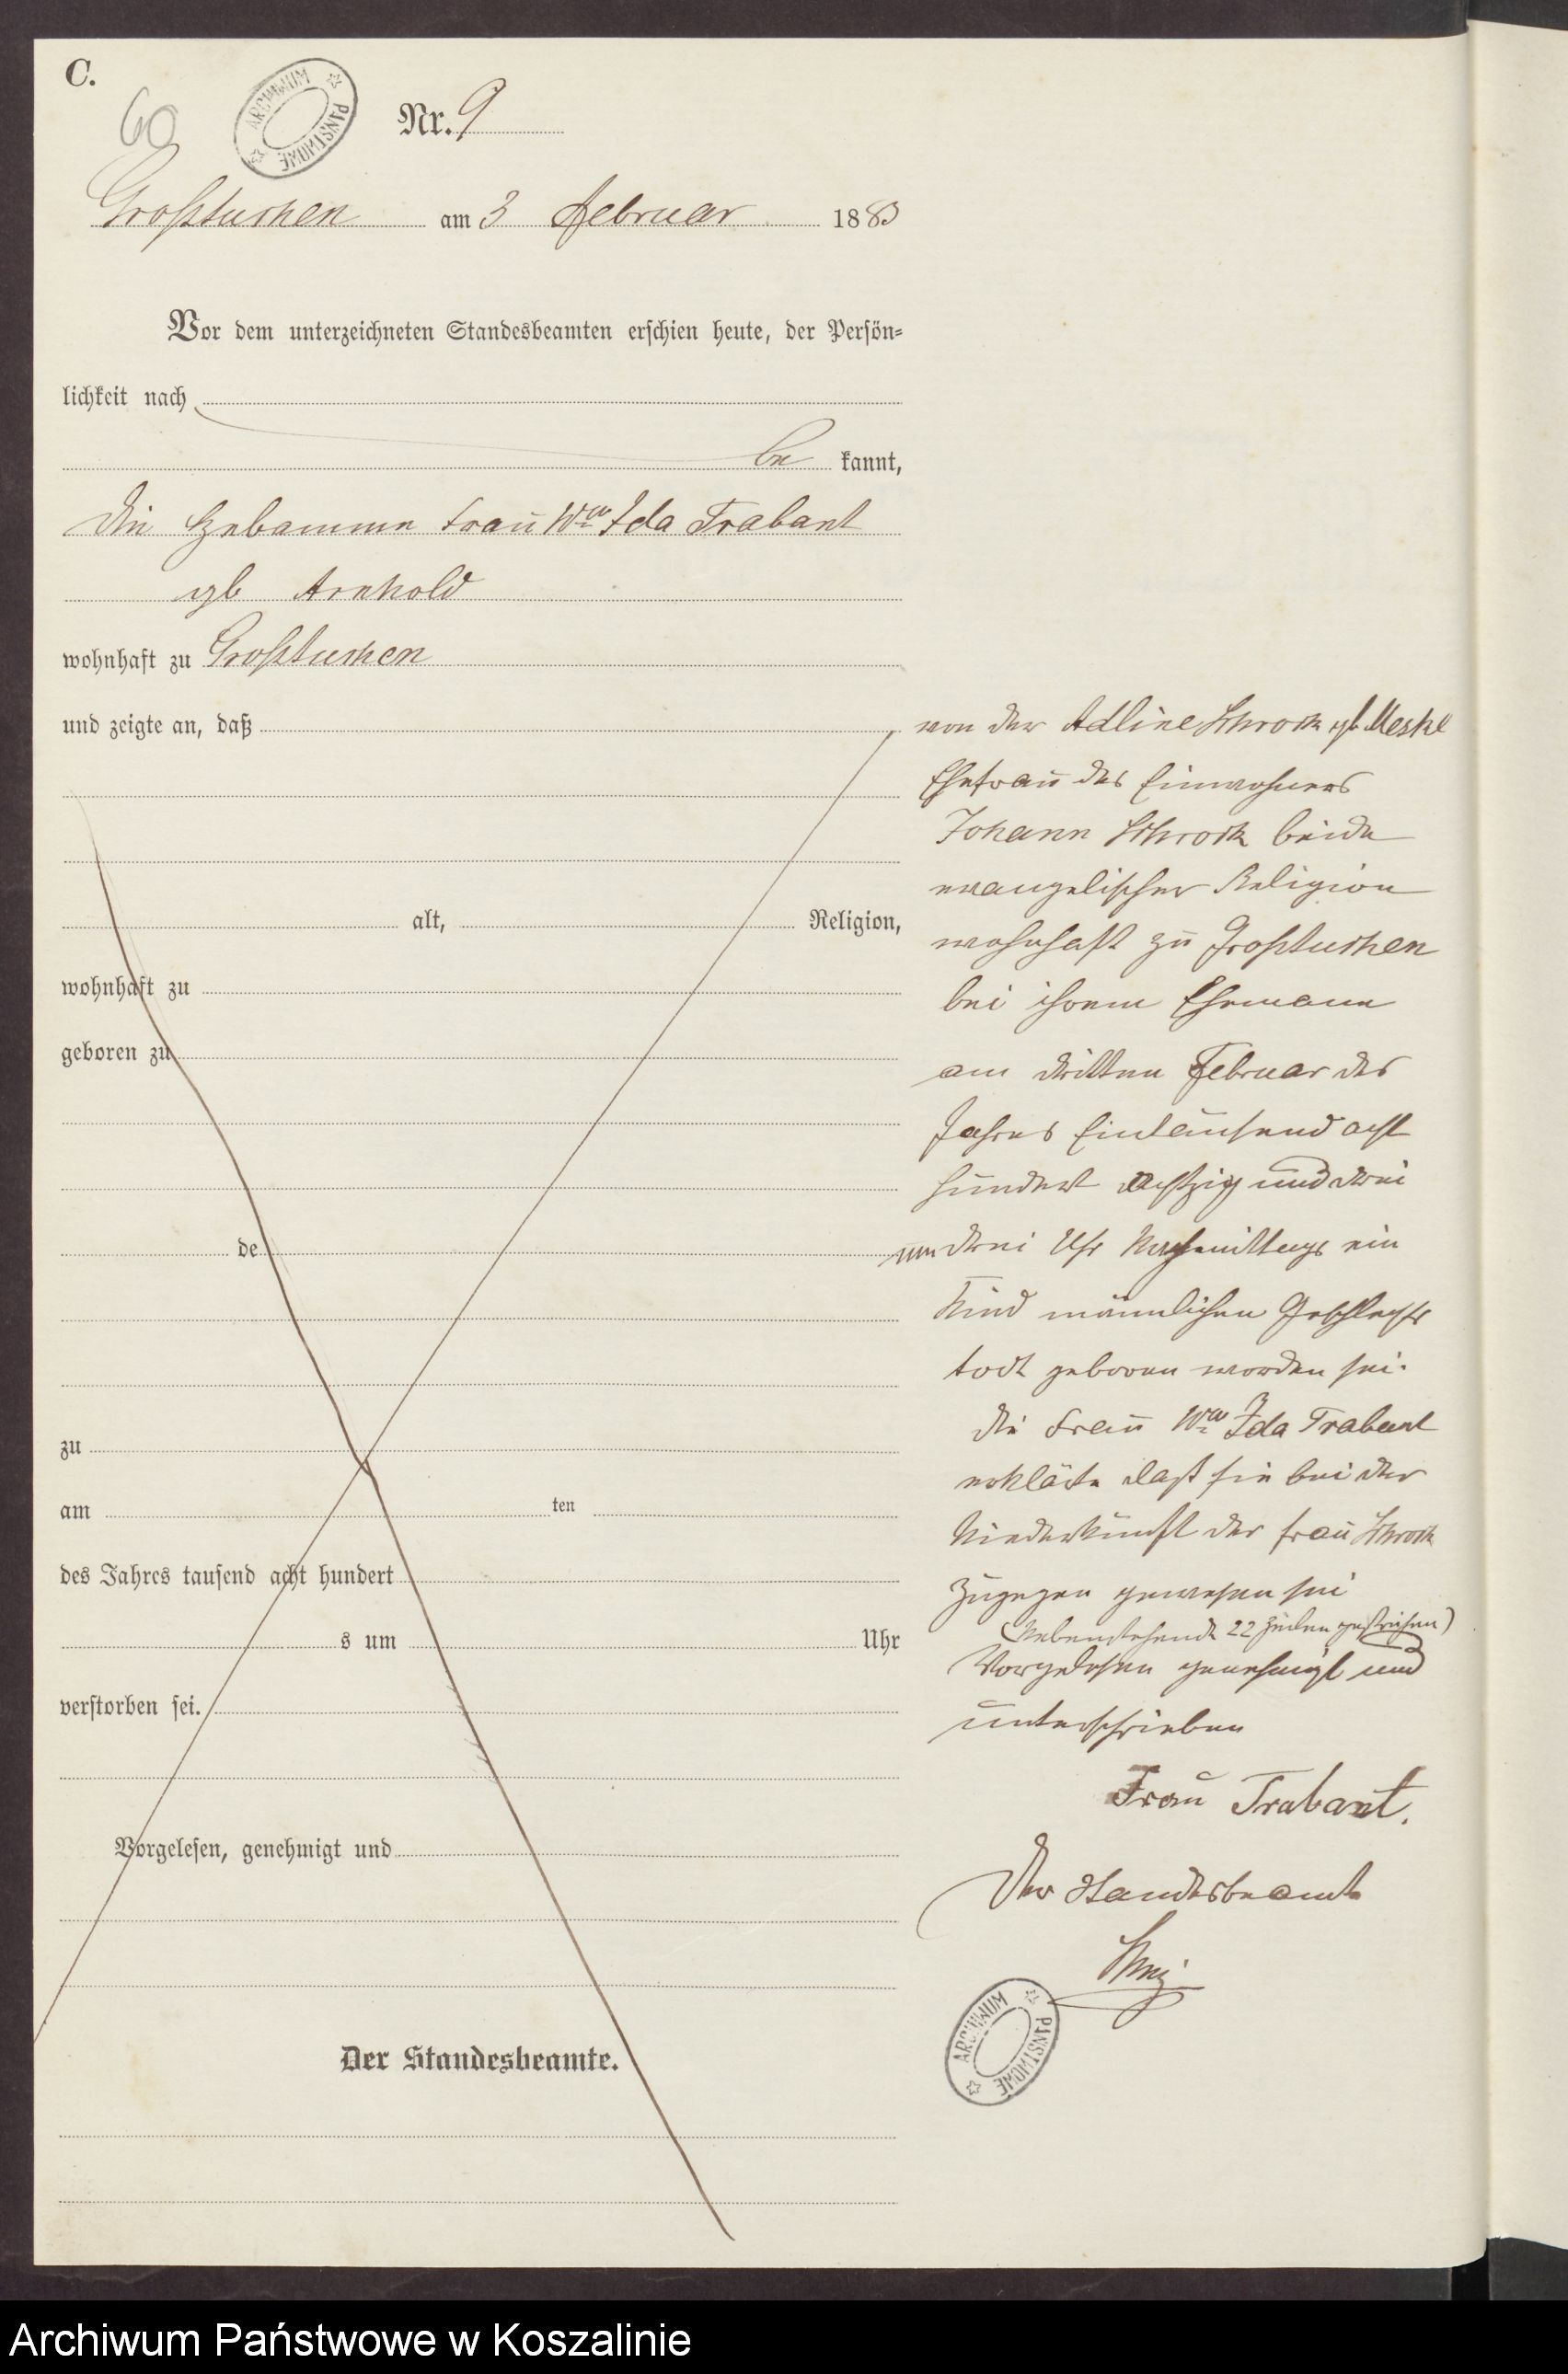 C.
60
ARCHIWUM PAŃSTWOWE
Nr. 9
Großtuchen am 3 Februar 1883
Vor dem unterzeichneten Standesbeamten erschien heute, der Persön-
lichkeit nach
be kannt,
die Hebamme Frau Wwe Ida Trabant
gb Arnhold
wohnhaft zu Großtuchen
und zeigte an, daß
alt, Religion,
wohnhaft zu
geboren zu
de
zu
am ten
des Jahres tausend acht hundert
s um Uhr
verstorben sei.
Vorgelesen, genehmigt und
Der Standesbeamte.
von der Adline Schrock gb Meske
Ehefrau des Einwohners
Johann Schrock beide
evangelischer Religion
wohnhaft zu Großtuchen
bei ihrem Ehemann
am dritten Februar des
Jahres Eintausend acht
hundert achtzig und drei
um drei Uhr Nachmittags ein
Kind männlichen Geschlechts
todt geboren worden sei.
die Frau Wwe Ida Trabant
erklärte daß sie bei der
Niederkunft der Frau Schrock
zugegen gewesen sei
(Nebenstehende 22 Zeilen gestrichen)
Vorgelesen genehmigt und
unterschrieben
Frau Trabant.
Der Standesbeamte
ARCHIWUM PAŃSTWOWE
Archiwum Państwowe w Koszalinie